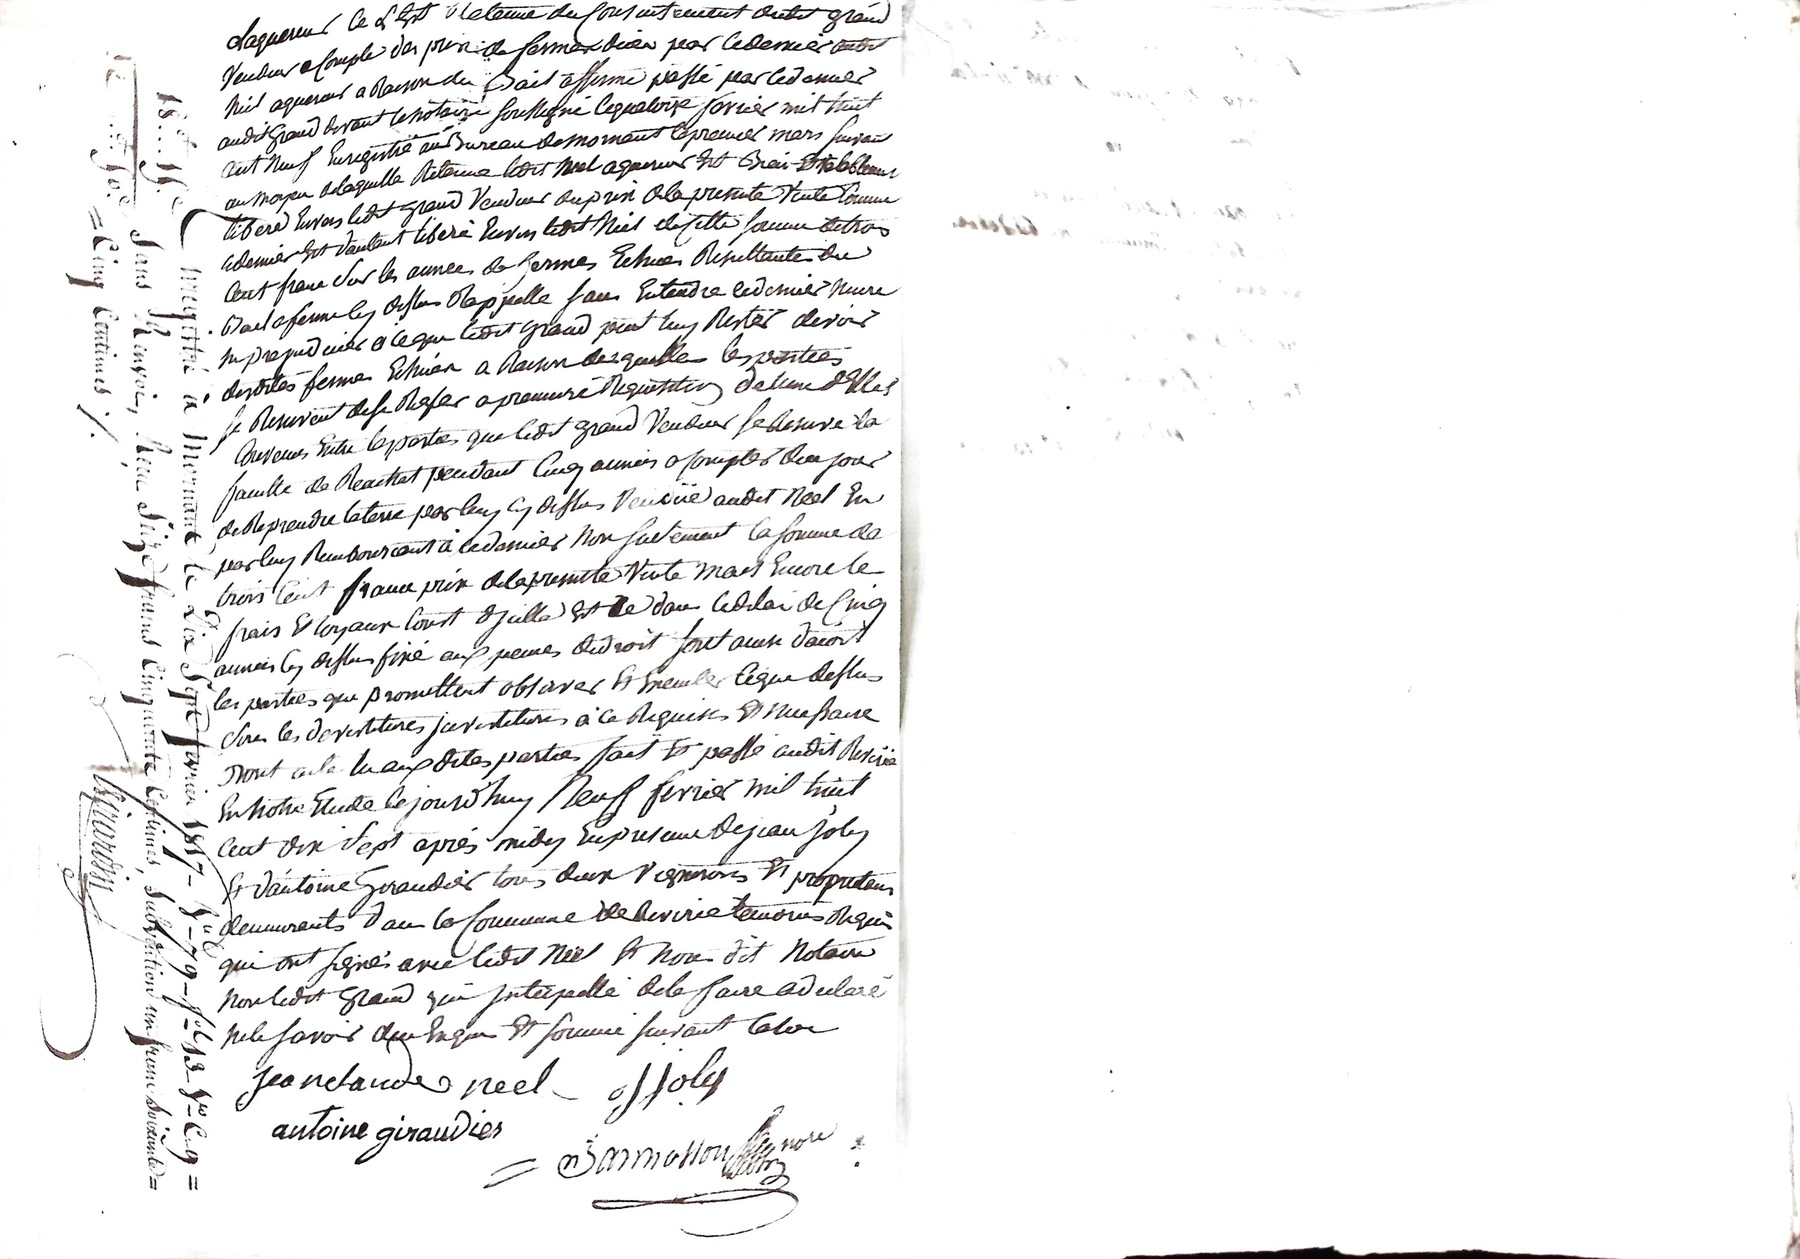 aquereur ce dernier l'a retenue du consentement dudit grand
vendeur a compte des prix de fermes dues par ce dernier audit
Neel aquereur a raison du Bail a ferme passé par ce dernier
audit grand devant le notaire soussigné le quatorze fevrier mil huit
cent neuf Enregistré au Bureau de mornant le premier mars suivant
au moyen de laquelle Retenue ledit Neel aquereur Est Bien Et valablement
libéré Envers ledit grand vendeur du prix de la presente vente comme
ce dernier Est d'autant libéré Envers ledit Neel de cette somme de trois
cent franc sur les années de fermes Echues Resultantes du
Bail a ferme cy dessus Rappellé sans Entendre ce dernier nuire
ny prejudicier à ce que ledit grand peut luy Rester devoir
desdites fermes Echues a Raison desquelles les parties
se Reservent de se Regler a premiere Requisition de l'une d'Elles
Convenu Entre les parties que ledit grand vendeur se Reserve la
faculté de Reachat pendant cinq années a compter de ce jour
de Reprendre la terre par luy cy dessus vendüe audit Neel En
par luy Remboursant à ce dernier non seulement la somme de
trois cent franc prix de la presente vente mais Encore le
frais Et loyaux cout d'icelle Et ce dans le delai de cinq
années cy dessus fixé aux peines de droit sont ainsi d'acord
les parties qui promettent observer Et Executer ce que dessus
sous les devestitures investitures à ce Requises Et necessaire
dont acte lu aux dites parties fait Et passé audit Riverie
En notre Etude le jourd'huy Neuf fevrier mil huit
cent dix sept après midy En presence de jean Joly
Et d'antoine Giraudier tous deux vignerons Et propriétaires
demeurants dans la Commune de Riverie temoins Requis
qui ont signés avec ledit Neel Et nous dit Notaire
non ledit grand qui interpellé de le faire a déclaré
ne le savoir de ce Enquis Et sommé suivant la loi
jean claude neel J Joly
antoine giraudier
Enregistré à Mornant, le Dix Sept fevrier 1817
Sans Renvoi, Reçu Seize francs Cinquante Centimes, Subvention un franc Soixante=
=Cinq Centimes